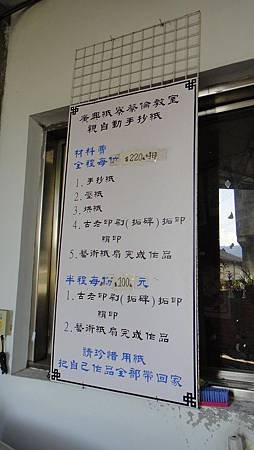 廣興紙寮蔡倫教室
親自動手抄紙
材料費
全程每份 $220
1. 手抄紙
2. 壓紙
3. 烘紙
4. 古老印刷(拓碑)拓印
5. 藝術紙扇完成作品
半程每份 $200 元
1. 古老印刷(拓碑)拓印
2. 藝術紙扇完成作品
請珍惜用紙
把自己作品全部帶回家